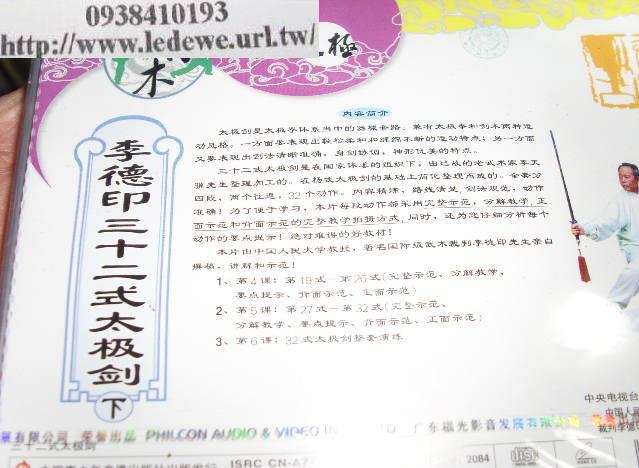 0938410193
http://www.ledewe.url.tw/
极
术
李德印三十二式太极剑
下
内容简介
太极剑是太极拳体系当中的器械套路。兼有太极拳和剑术两种运
动风格。一方面要表现出轻松柔和和缠绵不断的运动特点；另一方面
又要表现出剑法清晰准确，身剑协调，神形优美的特点。
三十二式太极剑是在国家体委的组织下，由已故的老武术家李天
骥先生整理加工的。在杨式太极剑的基础上简化整理而成的。全套分
四段，两个往返，32个动作。内容精炼，路线清楚，剑法规范，动作
准确！为了便于学习，本片每段动作都采用完整示范，分解教学，正
面示范和背面示范的完整教学拍摄方式。同时，还为您仔细分析每个
动作的要点提示！绝对难得的好教材！
本片由中国人民大学教授，著名国际级武术裁判李德印先生亲自
撰稿，讲解和示范！
1、第4课：第19式－第26式（完整示范、分解教学、
要点提示、背面示范、正面示范）
2、第5课：第27式－第32式（完整示范、
分解教学、要点提示、背面示范、正面示范）
3、第6课：32式太极剑整套演练
中央电视台
中国人民
裁判李德印
展有限公司 荣誉出品 PHILCON AUDIO & VIDEO IN 广东福光影音发展有限公司
三十二式太极剑
ISRC CN-A7
2084